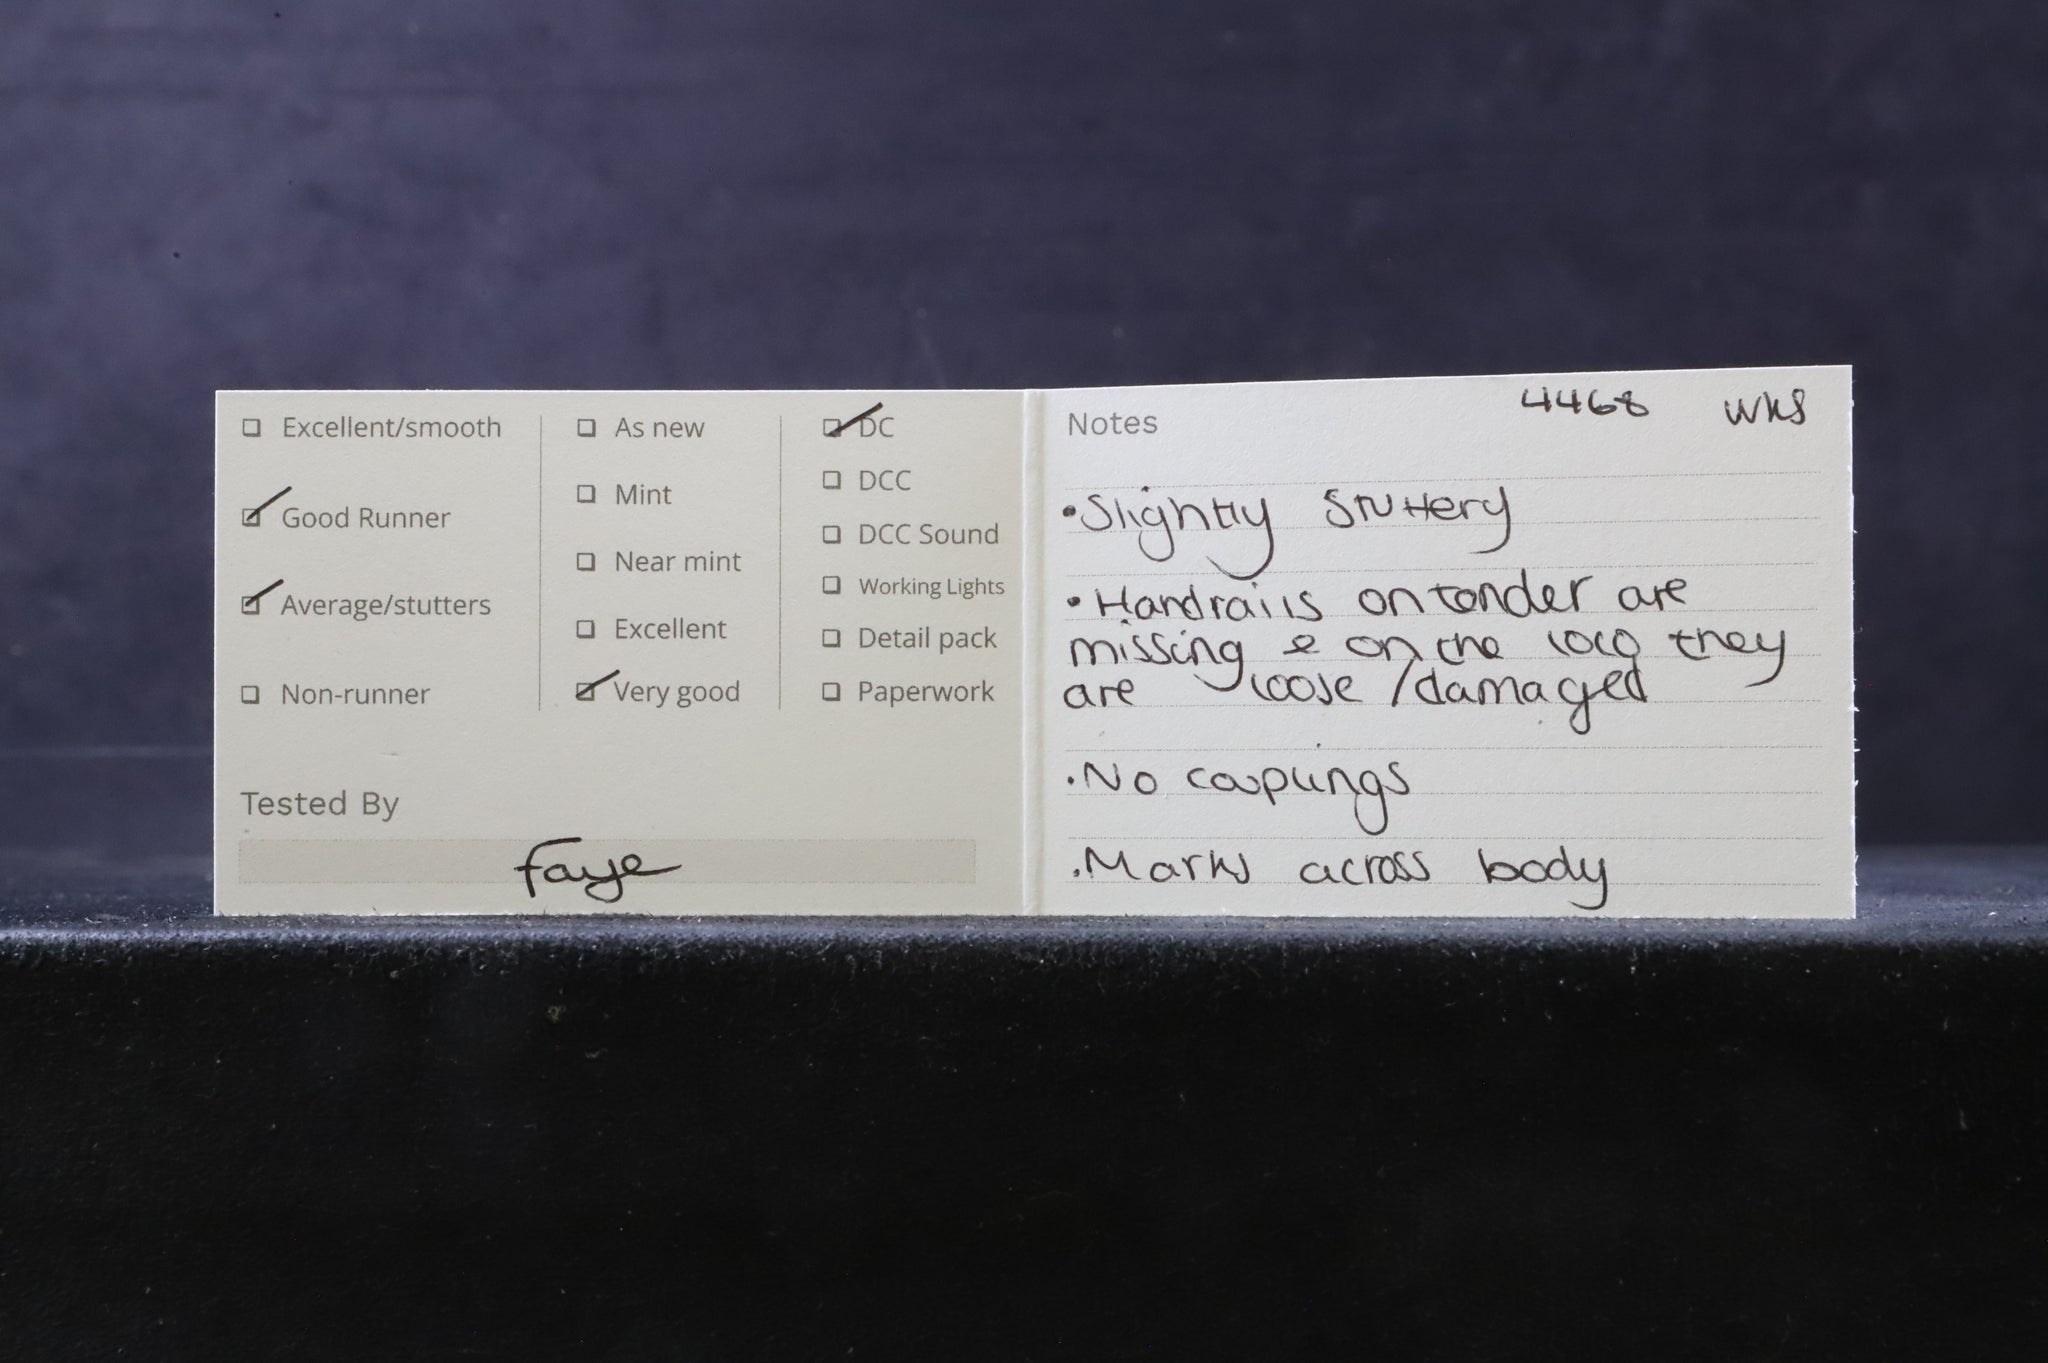 Excellent/smooth
Good Runner
Average/stutters
Non-runner
As new
Mint
Near mint
Excellent
Very good
DC
DCC
DCC Sound
Working Lights
Detail pack
Paperwork
Tested By
Faye
Notes 4468 WKS
•Slightly stuttery
•Handrails on tender are
missing & on the loco they
are loose/damaged
•No couplings
•Marks across body